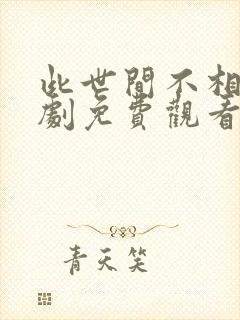 此世間不相
劇免費觀看
青天笑